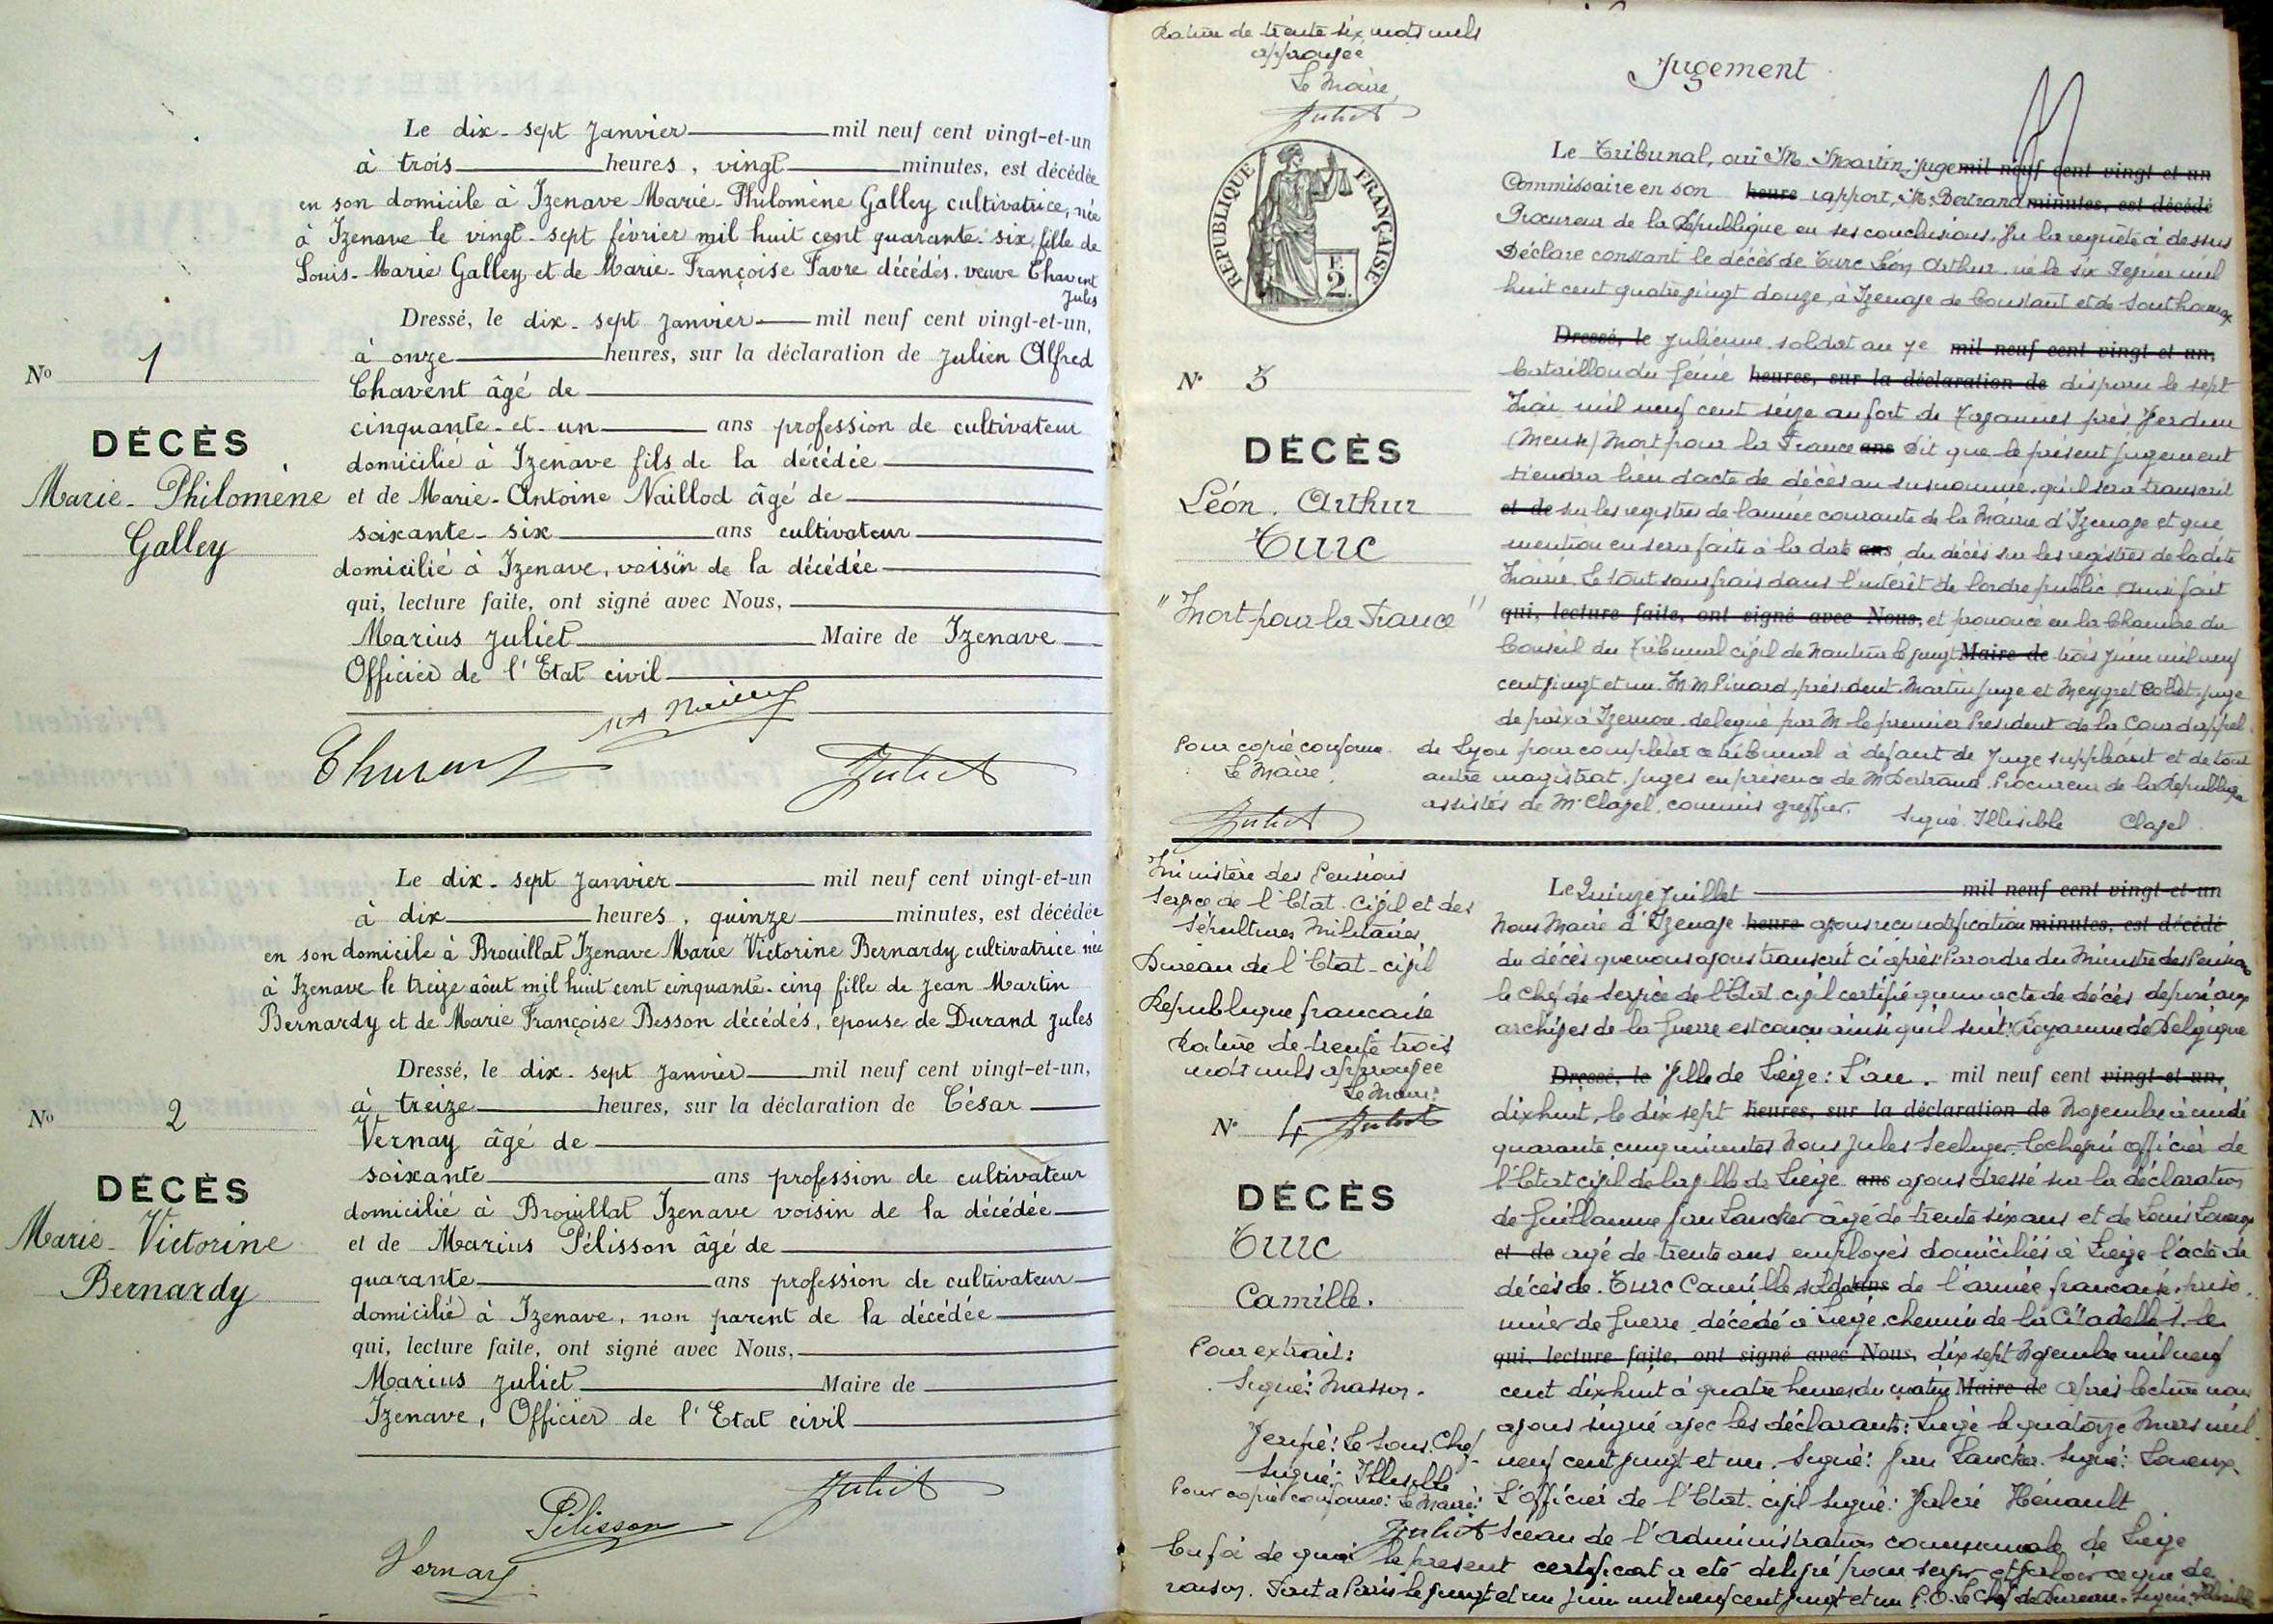 Le dix-sept Janvier mil neuf cent vingt-et-un
à trois heures, vingt minutes, est décédée
en son domicile à Izenave Marie-Philomène Galley cultivatrice, née
à Izenave le vingt-sept février mil huit cent quarante-six, fille de
Louis-Marie Galley et de Marie-Françoise Favre décédés, veuve Chavent
Jules
Dressé, le dix-sept Janvier mil neuf cent vingt-et-un,
à onze heures, sur la déclaration de Julien Alfred
Chavent âgé de
cinquante-et-un ans profession de cultivateur
domicilié à Izenave fils de la décédée
et de Marie-Antoine Naillod âgé de
soixante-six ans cultivateur
domicilié à Izenave, voisin de la décédée
qui, lecture faite, ont signé avec Nous,
Marius Juliet Maire de Izenave
Officier de l'Etat civil
Juliet
No 1
DÉCÈS
Marie-Philomène
Galley
Le dix-sept Janvier mil neuf cent vingt-et-un
à dix heures, quinze minutes, est décédée
en son domicile à Brouillat Izenave Marie Victorine Bernardy cultivatrice née
à Izenave le treize août mil huit cent cinquante-cinq fille de Jean Martin
Bernardy et de Marie Françoise Besson décédés, épouse de Durand Jules
Dressé, le dix-sept Janvier mil neuf cent vingt-et-un,
à treize heures, sur la déclaration de César
Vernay âgé de
soixante ans profession de cultivateur
domicilié à Brouillat Izenave voisin de la décédée
et de Marius Pélisson âgé de
quarante ans profession de cultivateur
domicilié à Izenave, non parent de la décédée
qui, lecture faite, ont signé avec Nous,
Marius Juliet Maire de
Izenave, Officier de l'Etat civil
Juliet
Pélisson
Vernay
No 2
DÉCÈS
Marie-Victorine
Bernardy
Rature de trente six mots nuls
approuvée
Le Maire,
Juliet
RÉPUBLIQUE FRANÇAISE
2 F
No 3
DÉCÈS
Léon. Arthur
Turc
"Mort pour la France"
Pour copie conforme
Le Maire,
Juliet
Jugement
Le Tribunal, ouï M. Martin, juge mil neuf cent vingt et un
Commissaire en son heure rapport, M. Bertrand minutes, est décédé
Procureur de la République en ses conclusions. Vu la requête ci dessus
Déclare constant le décès de Turc Léon Arthur, né le six février mil
huit cent quatre vingt douze, à Izenave de Constant et de Southonnax
Dressé, le Julienne, soldat au 7e mil neuf cent vingt et un,
bataillon du Génie heures, sur la déclaration de disparu le sept
Mai mil neuf cent seize au fort de Tavannes près Verdun
(Meuse) Mort pour la France ans Dit que le présent jugement
tiendra lieu d'acte de décès au susnommé, qu'il sera transcrit
et de sur les registres de l'année courante de la Mairie d'Izenave et que
mention en sera faite à la date ans du décès sur les registres de la dite
Mairie. Le tout sans frais dans l'intérêt de l'ordre public, ainsi fait
qui, lecture faite, ont signé avec Nous, et prononcé en la Chambre du
Conseil du Tribunal civil de Nantua le vingt Maire de trois Juin mil neuf
cent vingt et un. M M Pinard, président, Martin juge et Meygret Collet, juge
de paix à Izernore, délégué par M. le premier Président de la Cour d'appel
de Lyon pour compléter ce tribunal à défaut de Juge suppléant et de tout
autre magistrat. Juges en présence de M Bertrand, Procureur de la République
assistés de Mr Clavel, commis greffier. Signé Illisible Clavel
Ministère des Pensions
Service de l'Etat-Civil et des
Sépultures Militaires
Bureau de l'Etat-civil
République française
Rature de trente trois
mots nuls approuvée
Le Maire:
Juliet
No 4
DÉCÈS
Turc
Camille.
Pour extrait:
Signé: Masson.
Vérifié: Le Sous-Chef
Signé: Illisible
Pour copie conforme: Le Maire:
Juliet
Le Quinze Juillet mil neuf cent vingt-et-un
Nous Maire d'Izenave heure avons reçu notification minutes, est décédé
du décès que nous avons transcrit ci après: Par ordre du Ministre des Pensions
le chef de service de l'Etat-civil certifie qu'un acte de décès déposé aux
archives de la Guerre est conçu ainsi qu'il suit: Royaume de Belgique
Dressé, le Ville de Liège: L'an mil neuf cent vingt-et-un,
dixhuit, le dix sept heures, sur la déclaration de Novembre à midi
quarante cinq minutes Nous Jules Seeliger, Echevin officier de
l'Etat civil de la ville de Liège ans avons dressé sur la déclaration
de Guillaume Jean Lancker âgé de trente six ans et de Louis Loneux
et de âgé de trente ans employés domiciliés à Liège l'acte de
décès de Turc Camille, soldat ans de l'armée française, priso-
nnier de Guerre, décédé à Liège, chemin de la Citadelle 1, le
qui, lecture faite, ont signé avec Nous, dix sept Novembre mil neuf
cent dixhuit à quatre heures du matin Maire de après lecture nous
avons signé avec les déclarants: Liège le quatorze Mars mil
neuf cent vingt et un. Signé: Jean Lancker. Signé: Loneux.
L'officier de l'Etat-civil Signé: Valère Hénault
Sceau de l'administration communale de Liège
En foi de quoi le présent certificat a été délivré pour servir et valoir ce que de
raison. Fait à Paris le vingt et un juin mil neuf cent vingt et un P.O. Le Chef de Bureau. Signé: Illisible